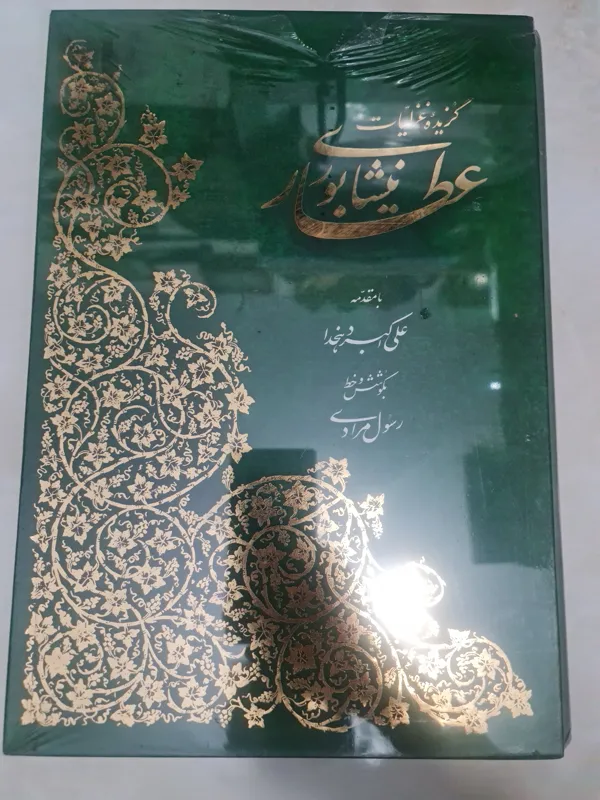 گزیدهٔ غزلیات
عطار نیشابوری
با مقدمه
علی اکبر دهخدا
بکوشش و خط
رسول مرادی